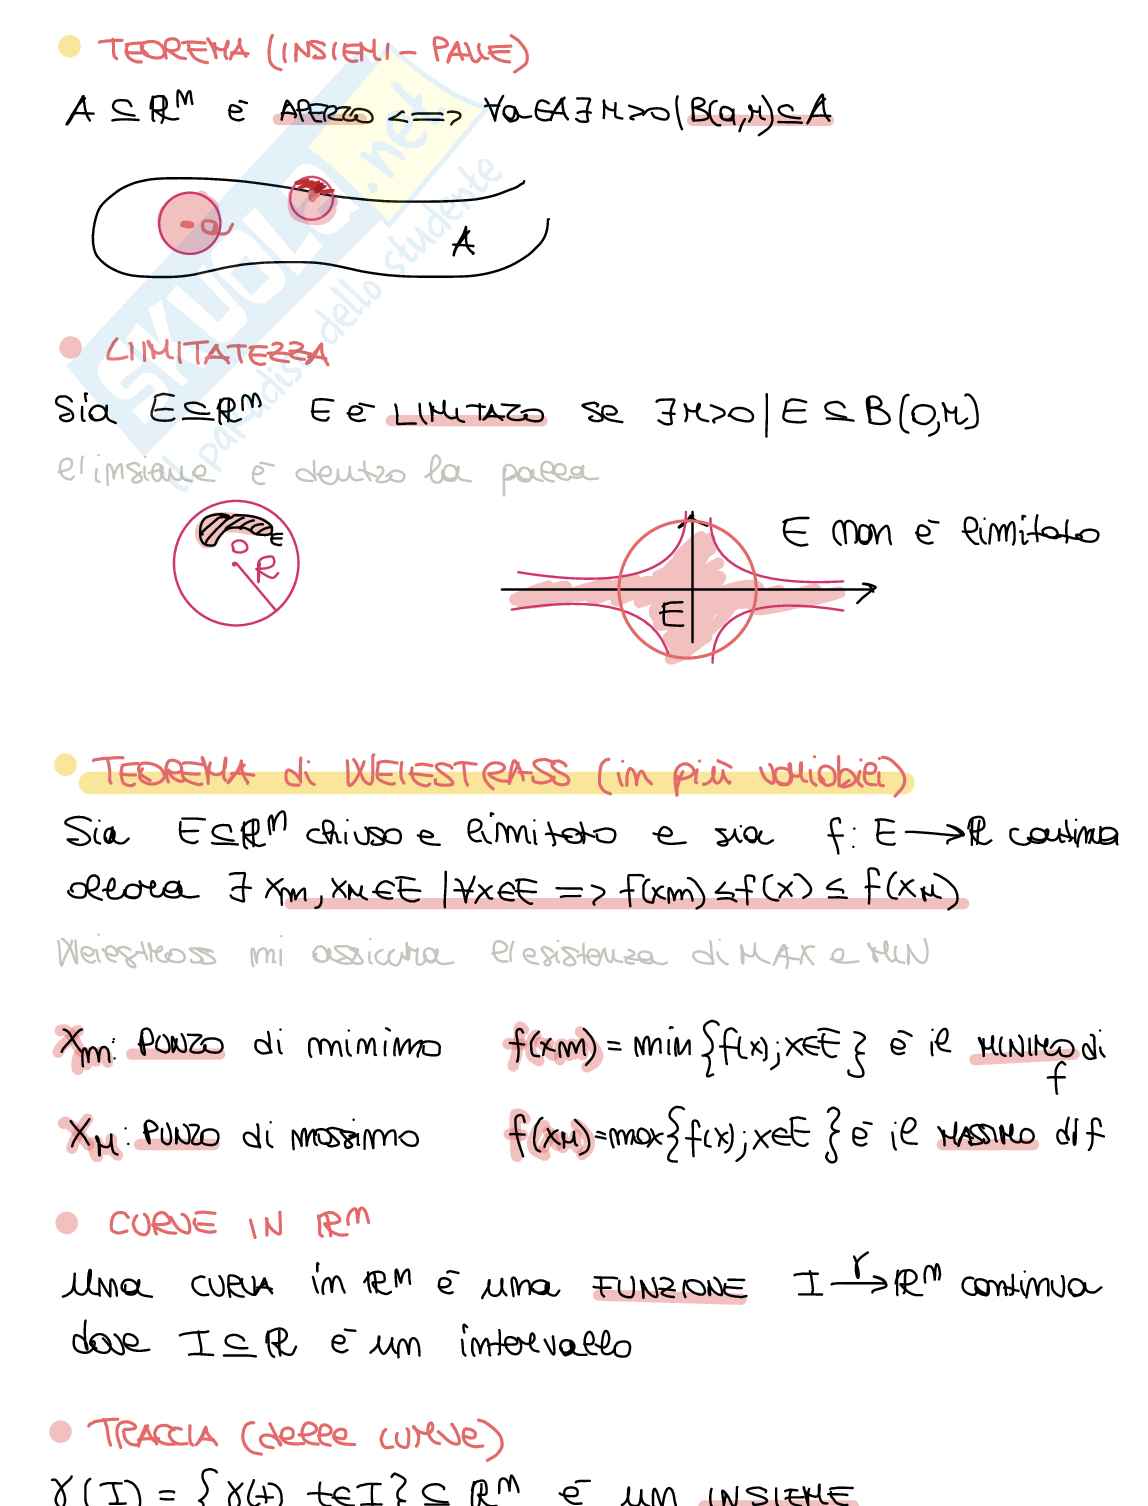 TEOREMA (INSIEMI - PALLE)
A ⊆ ℝⁿ è APERTO <=> ∀a∈A ∃ r>0 | B(a,r) ⊆ A
a
A
SKUOLA.net
il paradiso dello studente
LIMITATEZZA
Sia E⊆ℝⁿ E è LIMITATO se ∃ r>0 | E ⊆ B(0,r)
l'insieme è dentro la palla
E
0
R
E non è limitato
E
TEOREMA di WEIESTRASS (in più variabili)
Sia E⊆ℝⁿ chiuso e limitato e sia f: E → ℝ continua
allora ∃ xm, xM ∈ E | ∀x∈E => f(xm) ≤ f(x) ≤ f(xM)
Weiestrass mi assicura l'esistenza di MAX e MIN
xm: PUNTO di minimo f(xm) = min{f(x); x∈E} è il MINIMO di f
xM: PUNTO di massimo f(xM) = max{f(x); x∈E} è il MASSIMO di f
CURVE IN ℝⁿ
una CURVA in ℝⁿ è una FUNZIONE I →γ ℝⁿ continua
dove I⊆ℝ è un intervallo
TRACCIA (delle curve)
γ(I) = {γ(t) t∈I} ⊆ ℝⁿ è un INSIEME